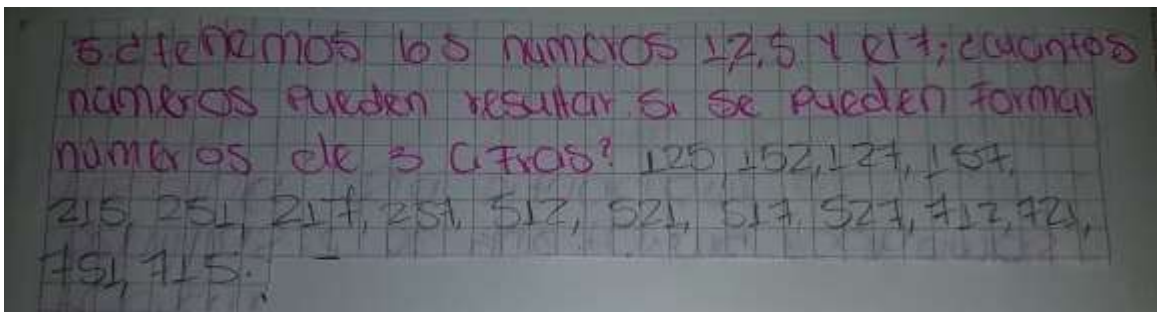 5. ¿tenemos los numeros 1,2,5 y el 7; cuantos
numeros pueden resultar si se pueden formar
numeros de 3 cifras? 125, 152, 127, 157,
215, 251, 217, 257, 512, 521, 517, 527, 712, 721,
751, 715.